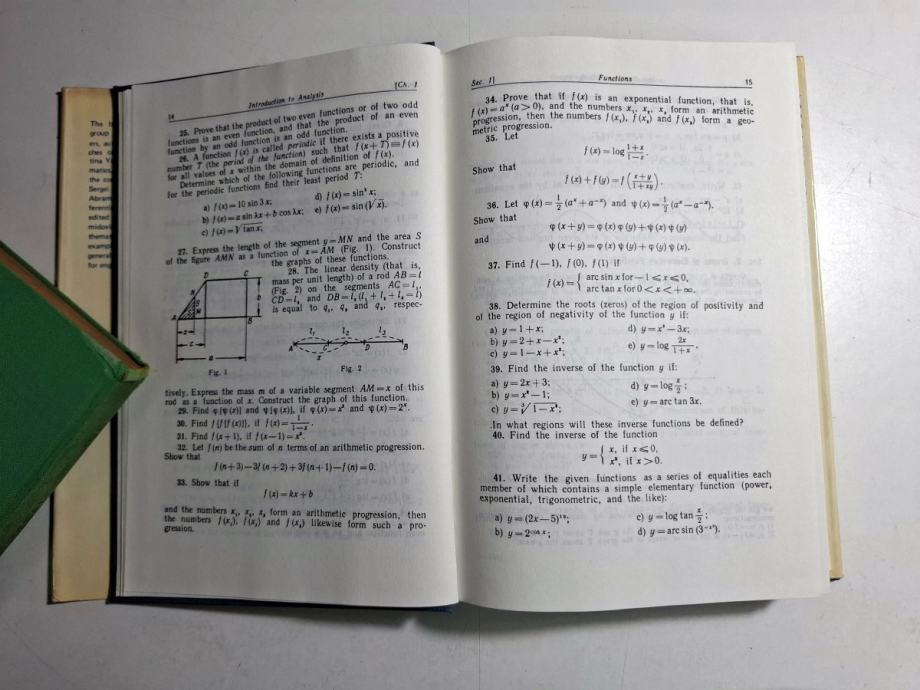 14 Introduction to Analysis [Ch. 1
25. Prove that the product of two even functions or of two odd
functions is an even function, and that the product of an even
function by an odd function is an odd function.
26. A function f(x) is called periodic if there exists a positive
number T (the period of the function) such that f(x+T)≡f(x)
for all values of x within the domain of definition of f(x).
Determine which of the following functions are periodic, and
for the periodic functions find their least period T:
a) f(x)=10 sin 3x; d) f(x)=sin² x;
b) f(x)=a sin λx+b cos λx; e) f(x)=sin(√x).
c) f(x)=√tan x;
27. Express the length of the segment y=MN and the area S
of the figure AMN as a function of x=AM (Fig. 1). Construct
the graphs of these functions.
28. The linear density (that is,
mass per unit length) of a rod AB=l
(Fig. 2) on the segments AC=l₁,
CD=l₂ and DB=l₃ (l₁+l₂+l₃=l)
is equal to q₁, q₂ and q₃, respec-
D C
N
S
M
A B
x
c
a
b
Fig. 1
l₁ l₂ l₃
A C D B
x
Fig. 2
tively. Express the mass m of a variable segment AM=x of this
rod as a function of x. Construct the graph of this function.
29. Find φ[ψ(x)] and ψ[φ(x)], if φ(x)=x² and ψ(x)=2ˣ.
30. Find f{f[f(x)]}, if f(x)=1/(1−x).
31. Find f(x+1), if f(x−1)=x².
32. Let f(n) be the sum of n terms of an arithmetic progression.
Show that
f(n+3)−3f(n+2)+3f(n+1)−f(n)=0.
33. Show that if
f(x)=kx+b
and the numbers x₁, x₂, x₃ form an arithmetic progression, then
the numbers f(x₁), f(x₂) and f(x₃) likewise form such a pro-
gression.
Sec. 1] Functions 15
34. Prove that if f(x) is an exponential function, that is,
f(x)=aˣ (a>0), and the numbers x₁, x₂, x₃ form an arithmetic
progression, then the numbers f(x₁), f(x₂) and f(x₃) form a geo-
metric progression.
35. Let
f(x)=log (1+x)/(1−x).
Show that
f(x)+f(y)=f((x+y)/(1+xy)).
36. Let φ(x)=½(aˣ+a⁻ˣ) and ψ(x)=½(aˣ−a⁻ˣ).
Show that
φ(x+y)=φ(x)φ(y)+ψ(x)ψ(y)
and
ψ(x+y)=φ(x)ψ(y)+φ(y)ψ(x).
37. Find f(−1), f(0), f(1) if
f(x)={ arc sin x for −1⩽x⩽0,
arc tan x for 0<x<+∞.
38. Determine the roots (zeros) of the region of positivity and
of the region of negativity of the function y if:
a) y=1+x; d) y=x³−3x;
b) y=2+x−x²; e) y=log 2x/(1+x).
c) y=1−x+x²;
39. Find the inverse of the function y if:
a) y=2x+3; d) y=log x/2;
b) y=x²−1; e) y=arc tan 3x.
c) y=∛(1−x³);
In what regions will these inverse functions be defined?
40. Find the inverse of the function
y={ x, if x⩽0,
x², if x>0.
41. Write the given functions as a series of equalities each
member of which contains a simple elementary function (power,
exponential, trigonometric, and the like):
a) y=(2x−5)¹⁰; c) y=log tan x/2;
b) y=2^(cos x); d) y=arc sin(3^(−x²)).